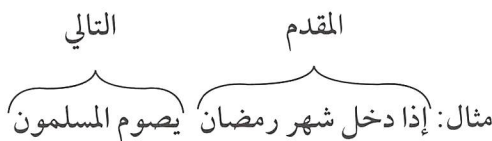 المقدم التالي
مثال: إذا دخل شهر رمضان يصوم المسلمون